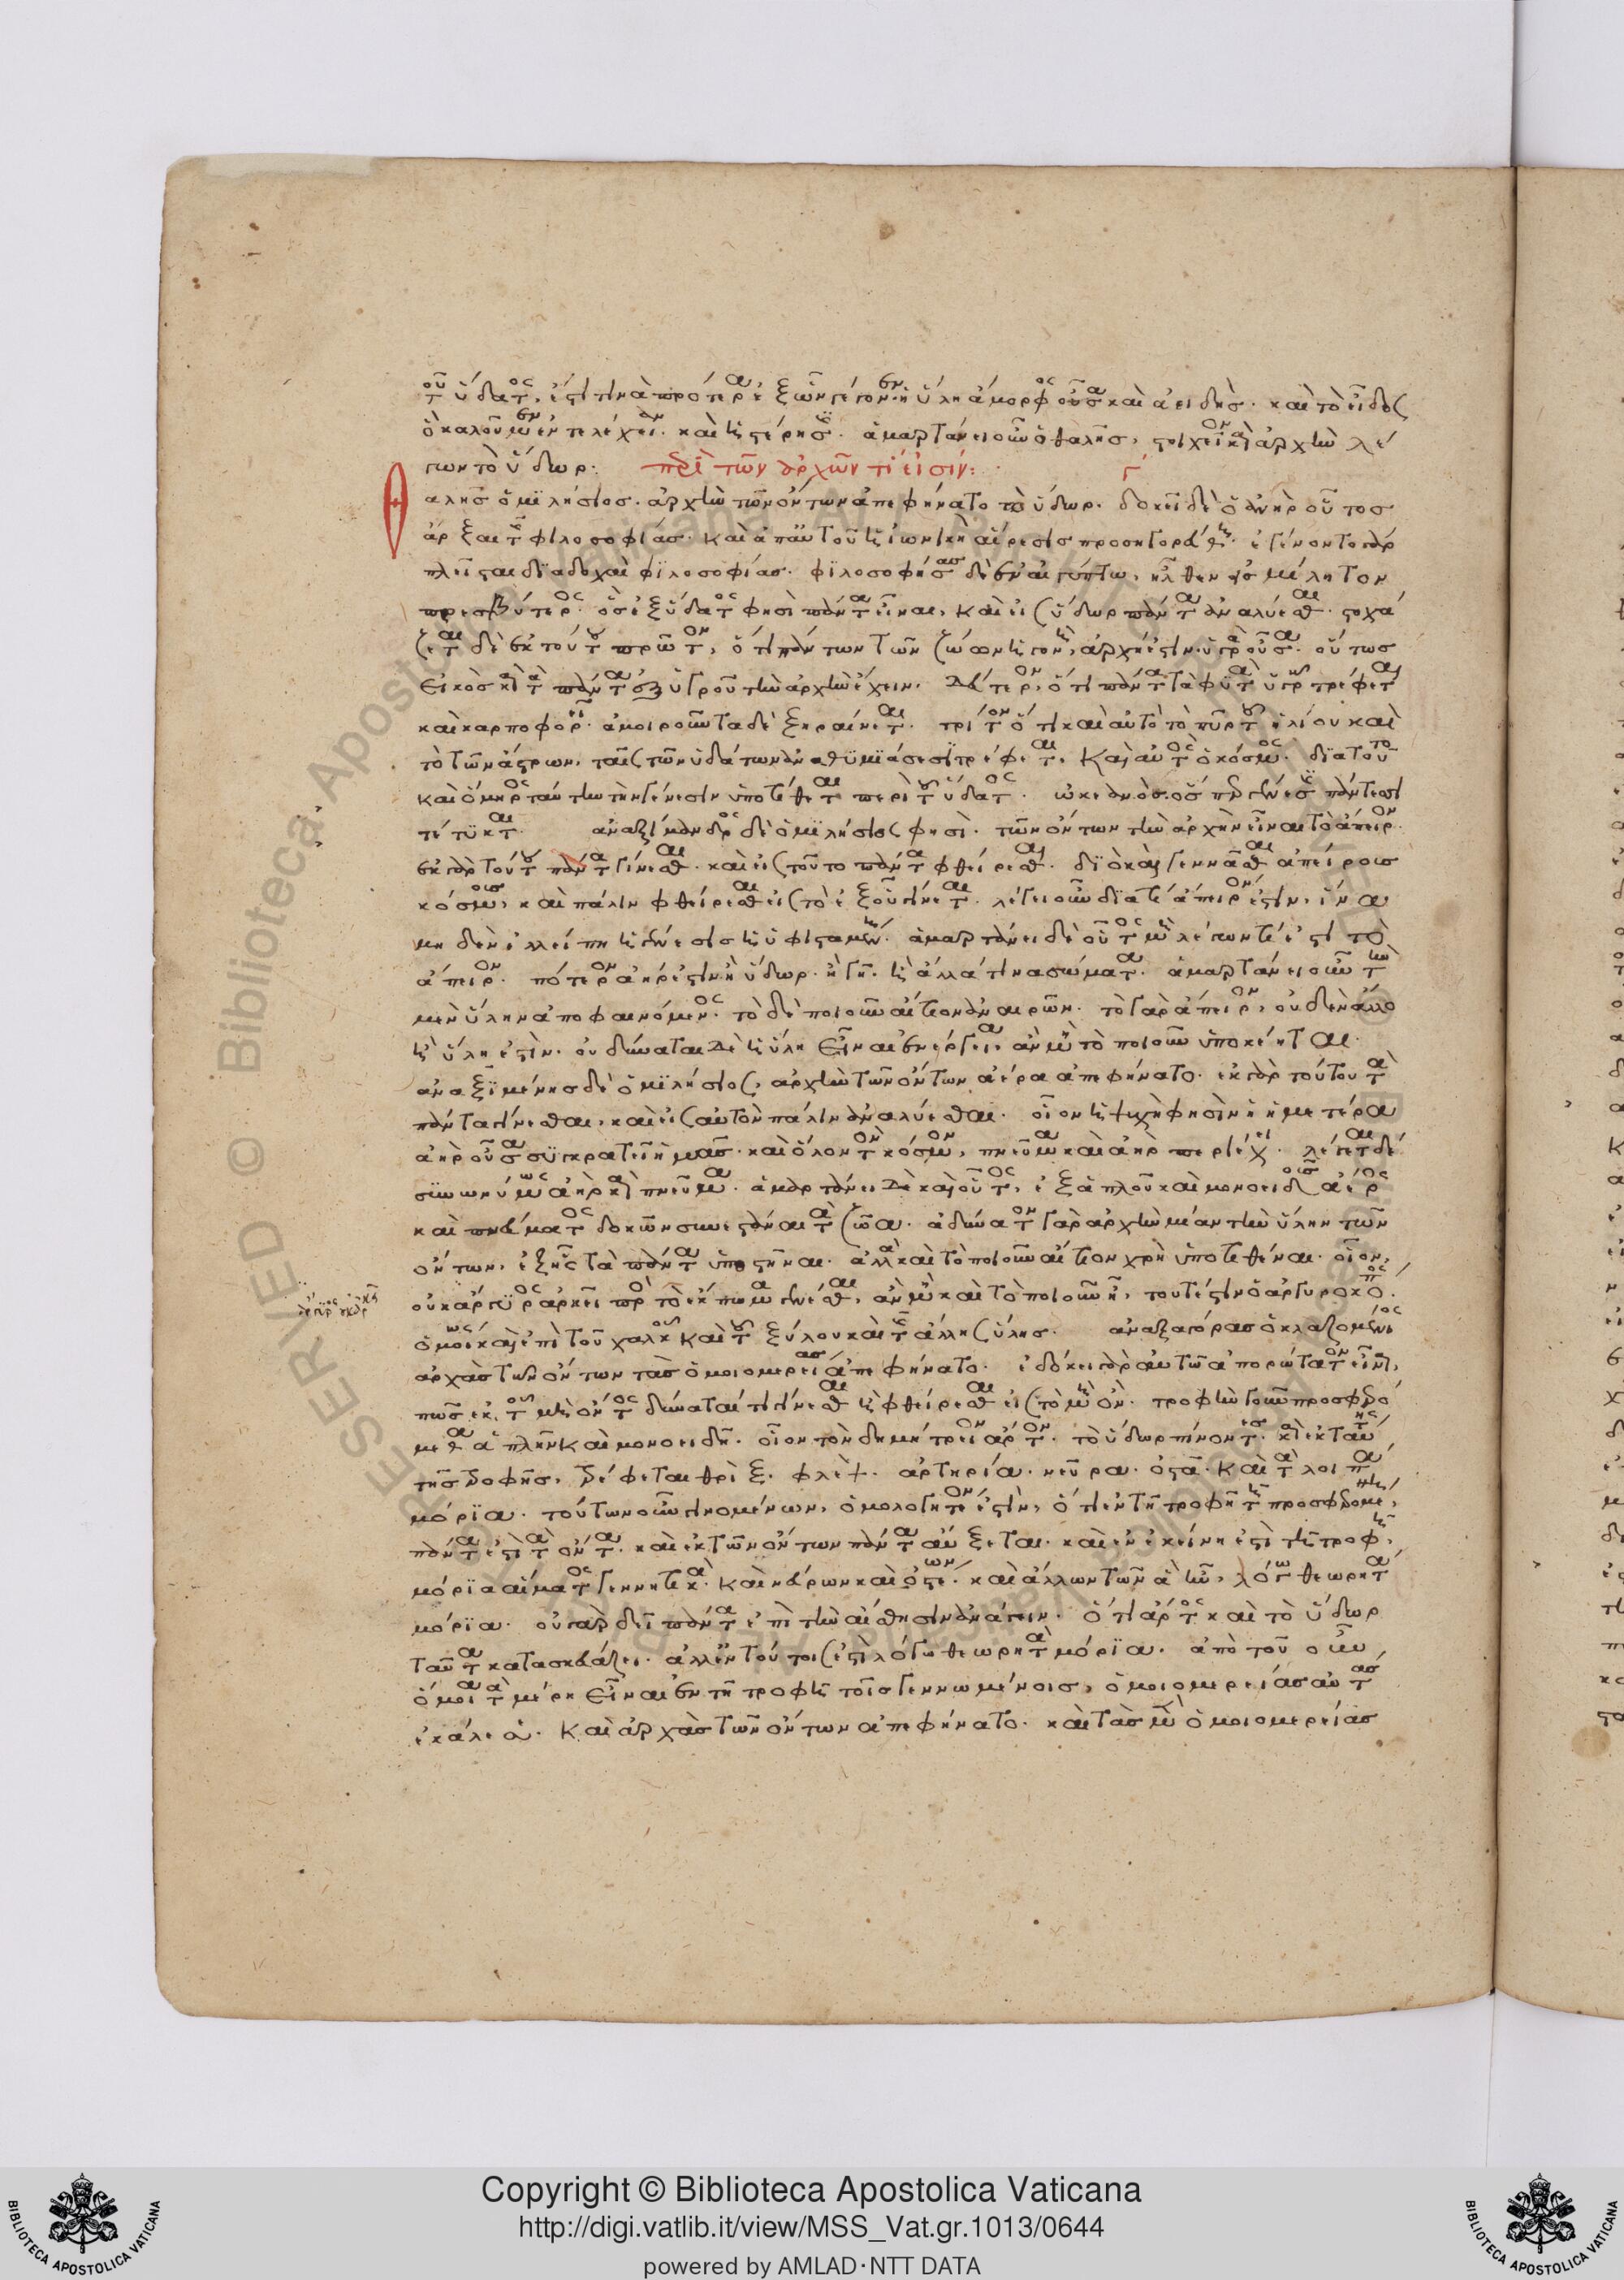 τοῦ ὕδατος, ἐστί τινα πρότερα ἐξ ὧν γέγονεν· ἡ ὕλη ἄμορφος οὖσα καὶ ἀειδής· καὶ τὸ εἶδος
ὃ καλοῦμεν ἐντελέχειαν· καὶ ἡ στέρησις· ἁμαρτάνει οὖν ὁ θαλῆς, στοιχεῖον καὶ ἀρχὴν λέ
γων τὸ ὕδωρ: περὶ τῶν ἀρχῶν τί εἰσίν: γ´
Θαλῆς ὁ μιλήσιος· ἀρχὴν τῶν ὄντων ἀπεφήνατο τὸ ὕδωρ· δοκεῖ δὲ ὁ ἀνὴρ οὗτος
ἄρξαι τῆς φιλοσοφίας· καὶ ἀπ' αὐτοῦ ἡ ἰωνικὴ αἵρεσις προσηγορεύθη· ἐγένοντο γὰρ
πλεῖσται διαδοχαὶ φιλοσοφίας· φιλοσοφήσας δὲ ἐν αἰγύπτω, ἦλθεν εἰς μίλητον
πρεσβύτερος· ὃς ἐξ ὕδατος φησὶ πάντα εἶναι, καὶ εἰς ὕδωρ πάντα ἀναλύεσθαι· στοχά
ζεται δὲ ἐκ τούτου πρῶτον, ὅτι πάντων τῶν ζώων ἡ γονὴ ἀρχή ἐστιν ὑγρὰ οὖσα· οὕτως
εἰκὸς καὶ τὰ πάντα ἐξ ὑγροῦ τὴν ἀρχὴν ἔχειν· δεύτερον, ὅτι πάντα τὰ φυτὰ ὑγρῶ τρέφεται
καὶ καρποφορεῖ· ἀμοιροῦντα δὲ ξηραίνεται· τρίτον ὅτι καὶ αὐτὸ τὸ πῦρ τοῦ ἡλίου καὶ
τὸ τῶν ἄστρων, ταῖς τῶν ὑδάτων ἀναθυμιάσεσι τρέφεται, καὶ αὐτὸς ὁ κόσμος· διατοῦτο
καὶ ὅμηρος ταύτην τὴν γένεσιν ὑποτίθεται περὶ τοῦ ὕδατος· ὠκεανὸς ὅσπερ γένεσις πάντεσσι
τέτυκται· ἀναξίμανδρος δὲ ὁ μιλήσιος φησὶ· τῶν ὄντων τὴν ἀρχὴν εἶναι τὸ ἄπειρον·
ἐκ γὰρ τούτου πάντα γίνεσθαι· καὶ εἰς τοῦτο πάντα φθείρεσθαι· διὸ καὶ γεννᾶσθαι ἀπείρους
κόσμους, καὶ πάλιν φθείρεσθαι εἰς τὸ ἐξ οὗ γίνεται· λέγει οὖν διατί ἄπειρόν ἐστιν, ἵνα
μηδὲν ἐλλείπη ἡ γένεσις ἡ ὑφισταμένη· ἁμαρτάνει δὲ οὗτος μὴ λέγων τί ἐστι τὸ
ἄπειρον· πότερον ἀήρ ἐστιν ἢ ὕδωρ· ἢ γῆ· ἢ ἄλλα τινα σώματα· ἁμαρτάνει οὖν τὴν
μὲν ὕλην ἀποφαινόμενος· τὸ δὲ ποιοῦν αἴτιον ἀναιρῶν· τὸ γὰρ ἄπειρον, οὐδὲν ἄλλο
ἢ ὕλη ἐστίν· οὐ δύναται δὲ ἡ ὕλη εἶναι ἐνέργεια, ἂν μὴ τὸ ποιοῦν ὑποκέηται·
ἀναξιμένης δὲ ὁ μιλήσιος, ἀρχὴν τῶν ὄντων ἀέρα ἀπεφήνατο· ἐκ γὰρ τούτου τὰ
πάντα γίνεσθαι, καὶ εἰς αὐτὸν πάλιν ἀναλύεσθαι· οἷον ἡ ψυχὴ φησὶν ἡ ἡμετέρα
ἀὴρ οὖσα συγκρατεῖ ἡμᾶς· καὶ ὅλον τὸν κόσμον, πνεῦμα καὶ ἀὴρ περιέχει· λέγεται δὲ
συνωνύμως ἀὴρ καὶ πνεῦμα· ἁμαρτάνει δὲ καὶ οὗτος, ἐξ ἁπλοῦ καὶ μονοειδοῦς ἀέρος
καὶ πνεύματος δοκῶν συνεστάναι τὰ ζῶα· ἀδύνατον γὰρ ἀρχὴν μίαν τὴν ὕλην τῶν
ὄντων, ἐξ ἧς τὰ πάντα ὑποστῆναι· ἀλλὰ καὶ τὸ ποιοῦν αἴτιον χρὴ ὑποτιθέναι· οἷον,
οὐκ ἄργυρος ἀρκεῖ πρὸς τὸ ἔκπωμα γενέσθαι, ἂν μὴ καὶ τὸ ποιοῦν ἦ, τουτέστιν ὁ ἀργυροκόπος·
ὁμοίως καὶ ἐπὶ τοῦ χαλκοῦ καὶ τοῦ ξύλου καὶ τῆς ἄλλης ὕλης· ἀναξαγόρας ὁ κλαζομένιος
ἀρχὰς τῶν ὄντων τὰς ὁμοιομερείας ἀπεφήνατο· ἐδόκει γὰρ αὐτῶ ἀπορώτατον εἶναι,
πῶς ἐκ τοῦ μὴ ὄντος δύναταί τι γίνεσθαι ἢ φθείρεσθαι εἰς τὸ μὴ ὄν· τροφὴν γοῦν προσφερό
μεθα ἁπλῆν καὶ μονοειδῆ· οἷον τὸν δημήτρειον ἄρτον· τὸ ὕδωρ πίνοντες· καὶ ἐκ ταύτης
τῆς τροφῆς, τρέφεται θρίξ· φλέψ· ἀρτηρία· νεῦρα· ὀστᾶ· καὶ τὰ λοιπὰ
μόρια· τούτων οὖν γινομένων, ὁμολογητέον ἐστὶν, ὅτι ἐν τῆ τροφῆ τῆ προσφερομένη,
πάντα ἐστὶ τὰ ὄντα· καὶ ἐκ τῶν ὄντων πάντα αὔξεται· καὶ ἐν ἐκείνη ἐστὶ τῆ τροφῆ,
μόρια αἵματος γεννητικά· καὶ νεύρων καὶ ὀστέων· καὶ ἄλλων τῶν ἃ ἦν, λόγω θεωρητὰ
μόρια· οὐ γὰρ δεῖ πάντα ἐπὶ τὴν αἴσθησιν ἀνάγειν· ὅτι ἄρτος καὶ τὸ ὕδωρ
ταῦτα κατασκευάζει· ἀλλ' ἐν τούτοις ἐστὶ λόγω θεωρητὰ μόρια· ἀπὸ τοῦ οὖν
ὅμοια τὰ μέρη εἶναι ἐν τῆ τροφῆ τοῖς γεννωμένοις, ὁμοιομερείας αὐτὰς
ἐκάλεσε· καὶ ἀρχὰς τῶν ὄντων ἀπεφήνατο· καὶ τὰς μὲν ὁμοιομερείας
Copyright © Biblioteca Apostolica Vaticana
http://digi.vatlib.it/view/MSS_Vat.gr.1013/0644
powered by AMLAD·NTT DATA
BIBLIOTECA APOSTOLICA VATICANA
BIBLIOTECA APOSTOLICA VATICANA